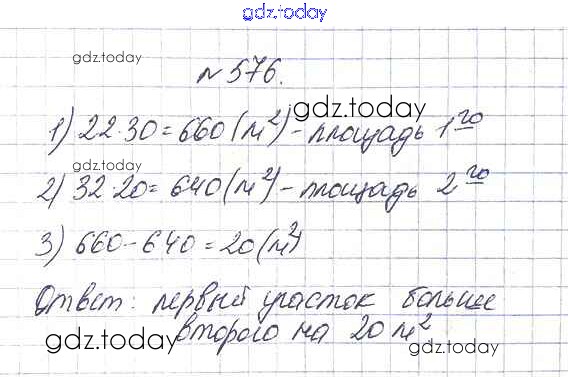 gdz.today
gdz.today
№ 576.
gdz.today
1) 22·30=660 (м²) - площадь 1го
gdz.today
2) 32·20=640 (м²) - площадь 2го
3) 660-640=20 (м²)
Ответ: первый участок больше
второго на 20 м²
gdz.today
gdz.today